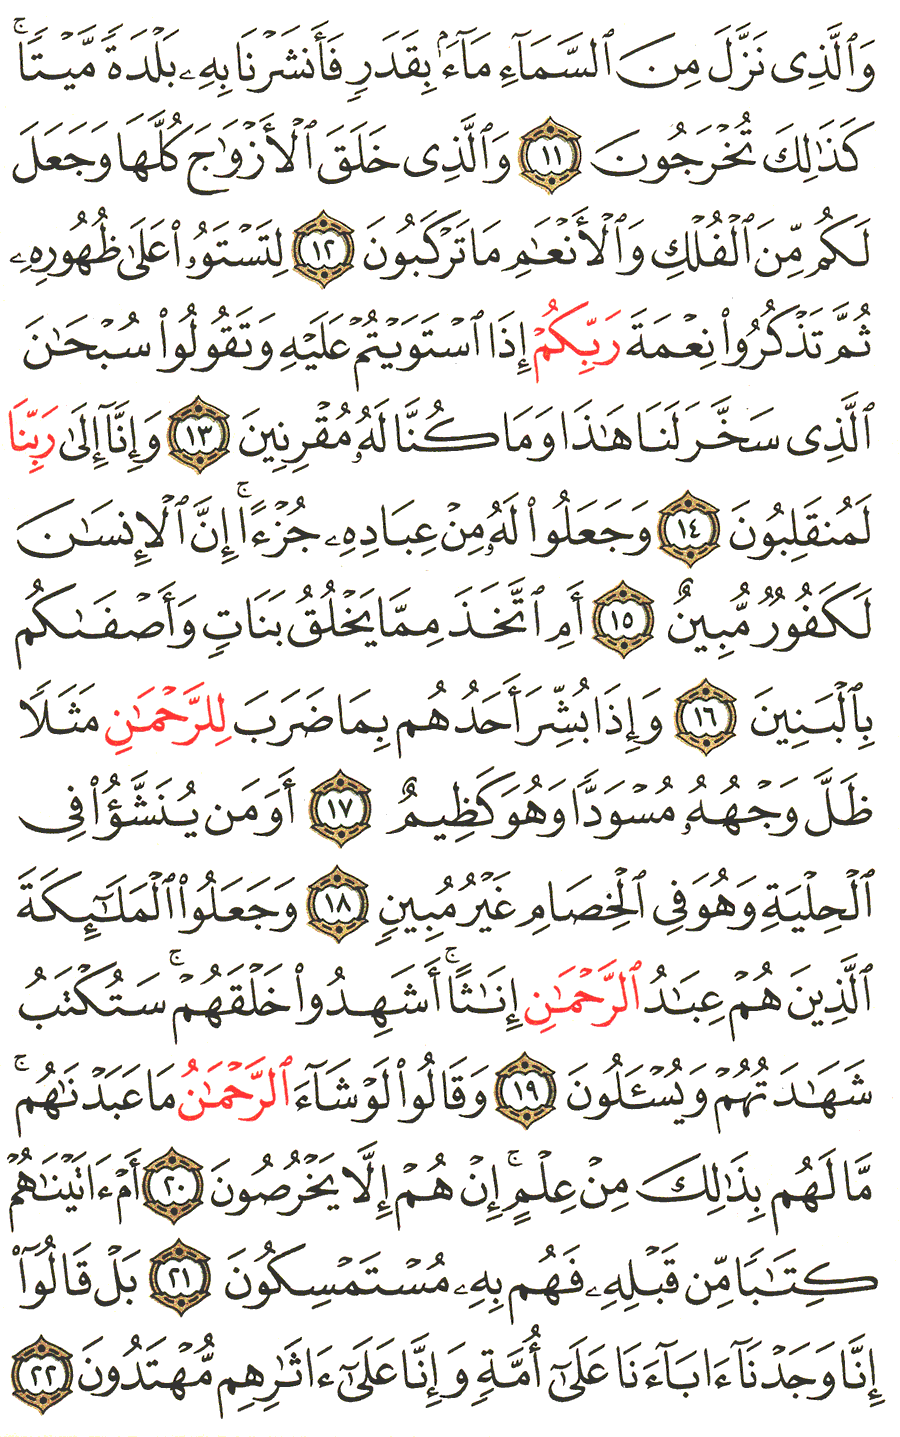 وَٱلَّذِى نَزَّلَ مِنَ ٱلسَّمَآءِ مَآءَۢ بِقَدَرٍ فَأَنشَرْنَا بِهِۦ بَلْدَةً مَّيْتًا ۚ
كَذَٰلِكَ تُخْرَجُونَ ١١ وَٱلَّذِى خَلَقَ ٱلْأَزْوَٰجَ كُلَّهَا وَجَعَلَ
لَكُم مِّنَ ٱلْفُلْكِ وَٱلْأَنْعَٰمِ مَا تَرْكَبُونَ ١٢ لِتَسْتَوُۥا۟ عَلَىٰ ظُهُورِهِۦ
ثُمَّ تَذْكُرُوا۟ نِعْمَةَ رَبِّكُمْ إِذَا ٱسْتَوَيْتُمْ عَلَيْهِ وَتَقُولُوا۟ سُبْحَٰنَ
ٱلَّذِى سَخَّرَ لَنَا هَٰذَا وَمَا كُنَّا لَهُۥ مُقْرِنِينَ ١٣ وَإِنَّآ إِلَىٰ رَبِّنَا
لَمُنقَلِبُونَ ١٤ وَجَعَلُوا۟ لَهُۥ مِنْ عِبَادِهِۦ جُزْءًا ۚ إِنَّ ٱلْإِنسَٰنَ
لَكَفُورٌ مُّبِينٌ ١٥ أَمِ ٱتَّخَذَ مِمَّا يَخْلُقُ بَنَاتٍ وَأَصْفَىٰكُم
بِٱلْبَنِينَ ١٦ وَإِذَا بُشِّرَ أَحَدُهُم بِمَا ضَرَبَ لِلرَّحْمَٰنِ مَثَلًا
ظَلَّ وَجْهُهُۥ مُسْوَدًّا وَهُوَ كَظِيمٌ ١٧ أَوَمَن يُنَشَّؤُا۟ فِى
ٱلْحِلْيَةِ وَهُوَ فِى ٱلْخِصَامِ غَيْرُ مُبِينٍ ١٨ وَجَعَلُوا۟ ٱلْمَلَٰٓئِكَةَ
ٱلَّذِينَ هُمْ عِبَٰدُ ٱلرَّحْمَٰنِ إِنَٰثًا ۚ أَشَهِدُوا۟ خَلْقَهُمْ ۚ سَتُكْتَبُ
شَهَٰدَتُهُمْ وَيُسْـَٔلُونَ ١٩ وَقَالُوا۟ لَوْ شَآءَ ٱلرَّحْمَٰنُ مَا عَبَدْنَٰهُم ۚ
مَّا لَهُم بِذَٰلِكَ مِنْ عِلْمٍ ۚ إِنْ هُمْ إِلَّا يَخْرُصُونَ ٢٠ أَمْ ءَاتَيْنَٰهُمْ
كِتَٰبًا مِّن قَبْلِهِۦ فَهُم بِهِۦ مُسْتَمْسِكُونَ ٢١ بَلْ قَالُوٓا۟
إِنَّا وَجَدْنَآ ءَابَآءَنَا عَلَىٰٓ أُمَّةٍ وَإِنَّا عَلَىٰٓ ءَاثَٰرِهِم مُّهْتَدُونَ ٢٢